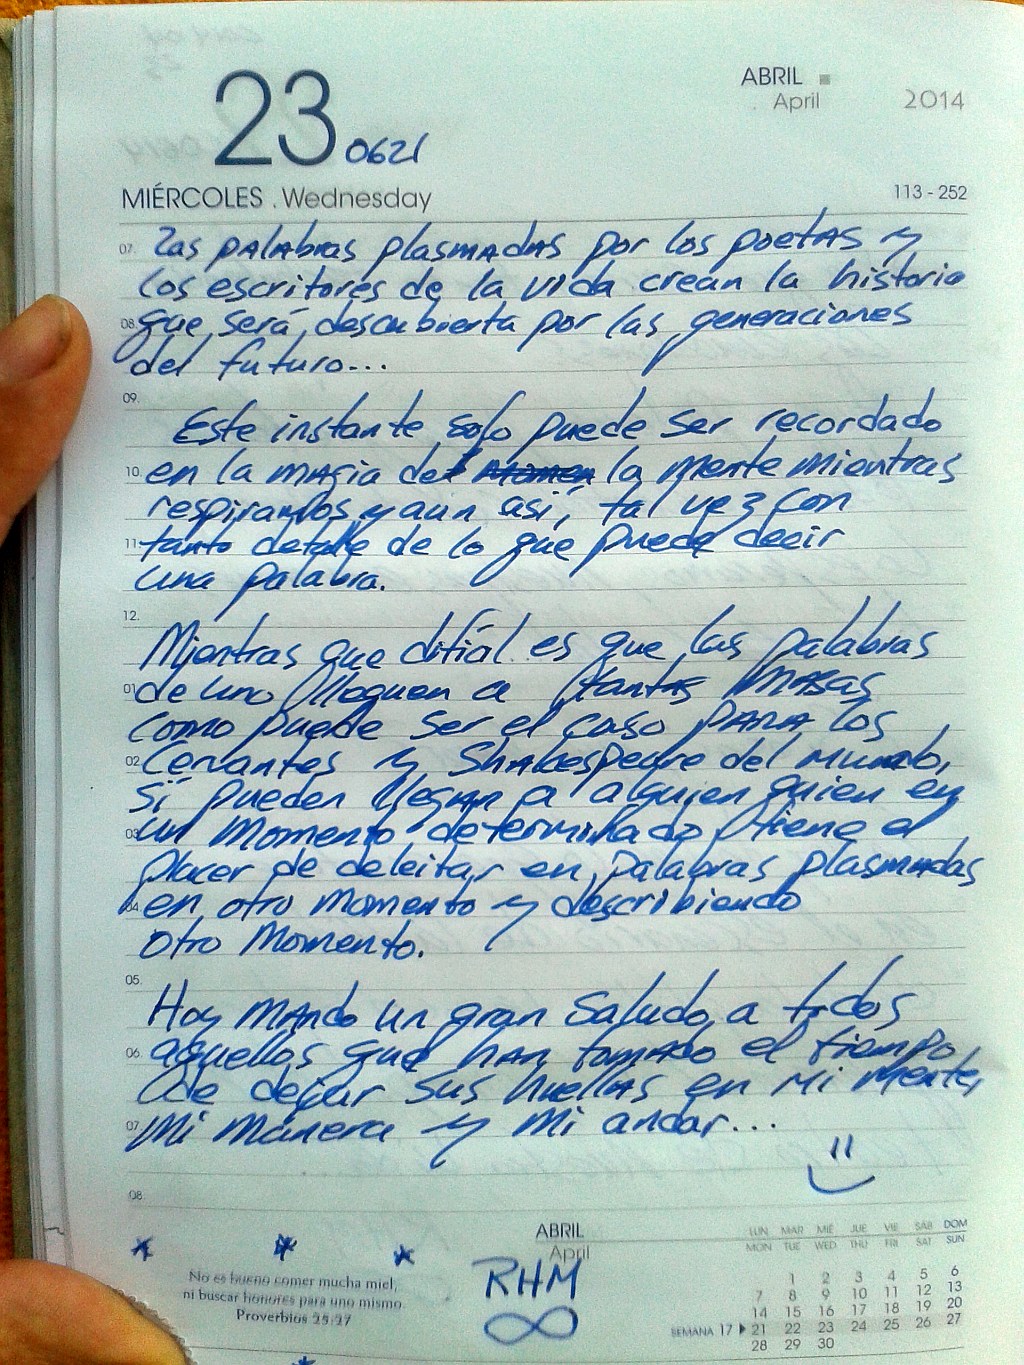 23 0621
ABRIL
April
2014
MIÉRCOLES . Wednesday
113 - 252
07. Las palabras plasmadas por los poetas y
los escritores de la vida crean la historia
08. que será descubierta por las generaciones
del futuro...
09.
Este instante solo puede ser recordado
10. en la magia de la mente mientras
respiramos y aun así, tal vez con
11. tanto detalle de lo que puede decir
una palabra.
12.
Mientras que difícil es que las palabras
01. de uno lleguen a tantas masas
como puede ser el caso para los
02. Cervantes y Shakespeare del mundo,
sí pueden llegar a alguien quien en
03. un momento determinado, tiene el
placer de deleitar en palabras plasmadas
04. en otro momento y describiendo
otro momento.
05.
Hoy mando un gran saludo a todos
06. aquellos que han tomado el tiempo
de dejar sus huellas en mi mente,
07. mi manera y mi andar...
08.
No es bueno comer mucha miel,
ni buscar honores para uno mismo.
Proverbios 25:27
ABRIL
April
RHM
LUN MAR MIÉ JUE VIE SÁB DOM
MON TUE WED THU FRI SAT SUN
1 2 3 4 5 6
7 8 9 10 11 12 13
14 15 16 17 18 19 20
SEMANA 17 21 22 23 24 25 26 27
28 29 30